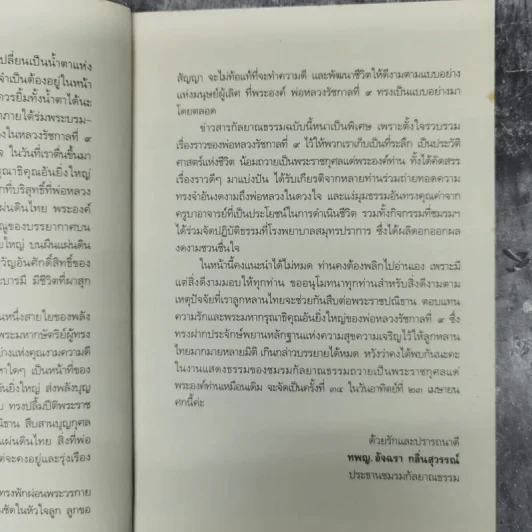 ปลี่ยนเป็นน้ำตาแห่ง
จำเป็นต้องอยู่ในหน้า
ควรยิ้มทั้งน้ำตาได้นะ
าภายใต้ร่มพระบรม-
งในหลวงรัชกาลที่ ๙
ในวันที่เราตื่นขึ้นมา
ธิคุณอันยิ่งใหญ่
กที่บริสุทธิ์ที่พ่อหลวง
ผ่นดินไทย พระองค์
ณของบรรยากาศบน
ยใหญ่ บนผืนแผ่นดิน
วัญอันศักดิ์สิทธิ์ของ
บารมี มีชีวิตที่ผาสุก
หนึ่งสายใยของพลัง
พระมหากษัตริย์ผู้ทรง
ย่างแห่งคุณงามความดี
หาใดๆ เป็นหน้าที่ของ
งยิ่งใหญ่ ส่งพลังบุญ
ทรงปลื้มปีติพระราช
ธิธาน สืบสานบุญกุศล
แผ่นดินไทย สิ่งที่พ่อ
ต่จะคงอยู่และรุ่งเรือง
ทรงพักผ่อนพระวรกาย
มชัดในหัวใจลูก ลูกขอ
สัญญา จะไม่ท้อแท้ที่จะทำความดี และพัฒนาชีวิตให้ดีงามตามแบบอย่าง
แห่งมนุษย์ผู้เลิศ ที่พระองค์ พ่อหลวงรัชกาลที่ ๙ ทรงเป็นแบบอย่างมา
โดยตลอด
ข่าวสารกัลยาณธรรมฉบับนี้หนาเป็นพิเศษ เพราะตั้งใจรวบรวม
เรื่องราวของพ่อหลวงรัชกาลที่ ๙ ไว้ให้พวกเราเก็บเป็นที่ระลึก เป็นประวัติ
ศาสตร์แห่งชีวิต น้อมถวายเป็นพระราชกุศลแด่พระองค์ท่าน ทั้งได้คัดสรร
เรื่องราวดีๆ มาแบ่งปัน ได้รับเกียรติจากหลายท่านร่วมถ่ายทอดความ
ทรงจำอันงดงามถึงพ่อหลวงในดวงใจ และแง่มุมธรรมอันทรงคุณค่าจาก
ครูบาอาจารย์ที่เป็นประโยชน์ในการดำเนินชีวิต รวมทั้งกิจกรรมที่ชมรมฯ
ได้ร่วมจัดปฏิบัติธรรมที่โรงพยาบาลสมุทรปราการ ซึ่งได้ผลิดอกออกผล
งดงามชวนชื่นใจ
ในหน้านี้คงแนะนำได้ไม่หมด ท่านคงต้องพลิกไปอ่านเอง เพราะมี
แต่สิ่งดีงามมอบให้ทุกท่าน ขออนุโมทนาทุกท่านสำหรับสิ่งดีงามตาม
เหตุปัจจัยที่เราลูกหลานไทยจะช่วยกันสืบต่อพระราชปณิธาน ตอบแทน
ความรักและพระมหากรุณาธิคุณอันยิ่งใหญ่ของพ่อหลวงรัชกาลที่ ๙ ซึ่ง
ทรงฝากประจักษ์พยานหลักฐานแห่งความสุขความเจริญไว้ให้ลูกหลาน
ไทยมากมายหลายมิติ เกินกล่าวบรรยายได้หมด หวังว่าคงได้พบกันนะคะ
ในงานแสดงธรรมของชมรมกัลยาณธรรมถวายเป็นพระราชกุศลแด่
พระองค์ท่านเหมือนเดิม จะจัดเป็นครั้งที่ ๓๔ ในวันอาทิตย์ที่ ๒๓ เมษายน
ศกนี้ค่ะ
ด้วยรักและปรารถนาดี
ทพญ. อัจฉรา กลิ่นสุวรรณ์
ประธานชมรมกัลยาณธรรม